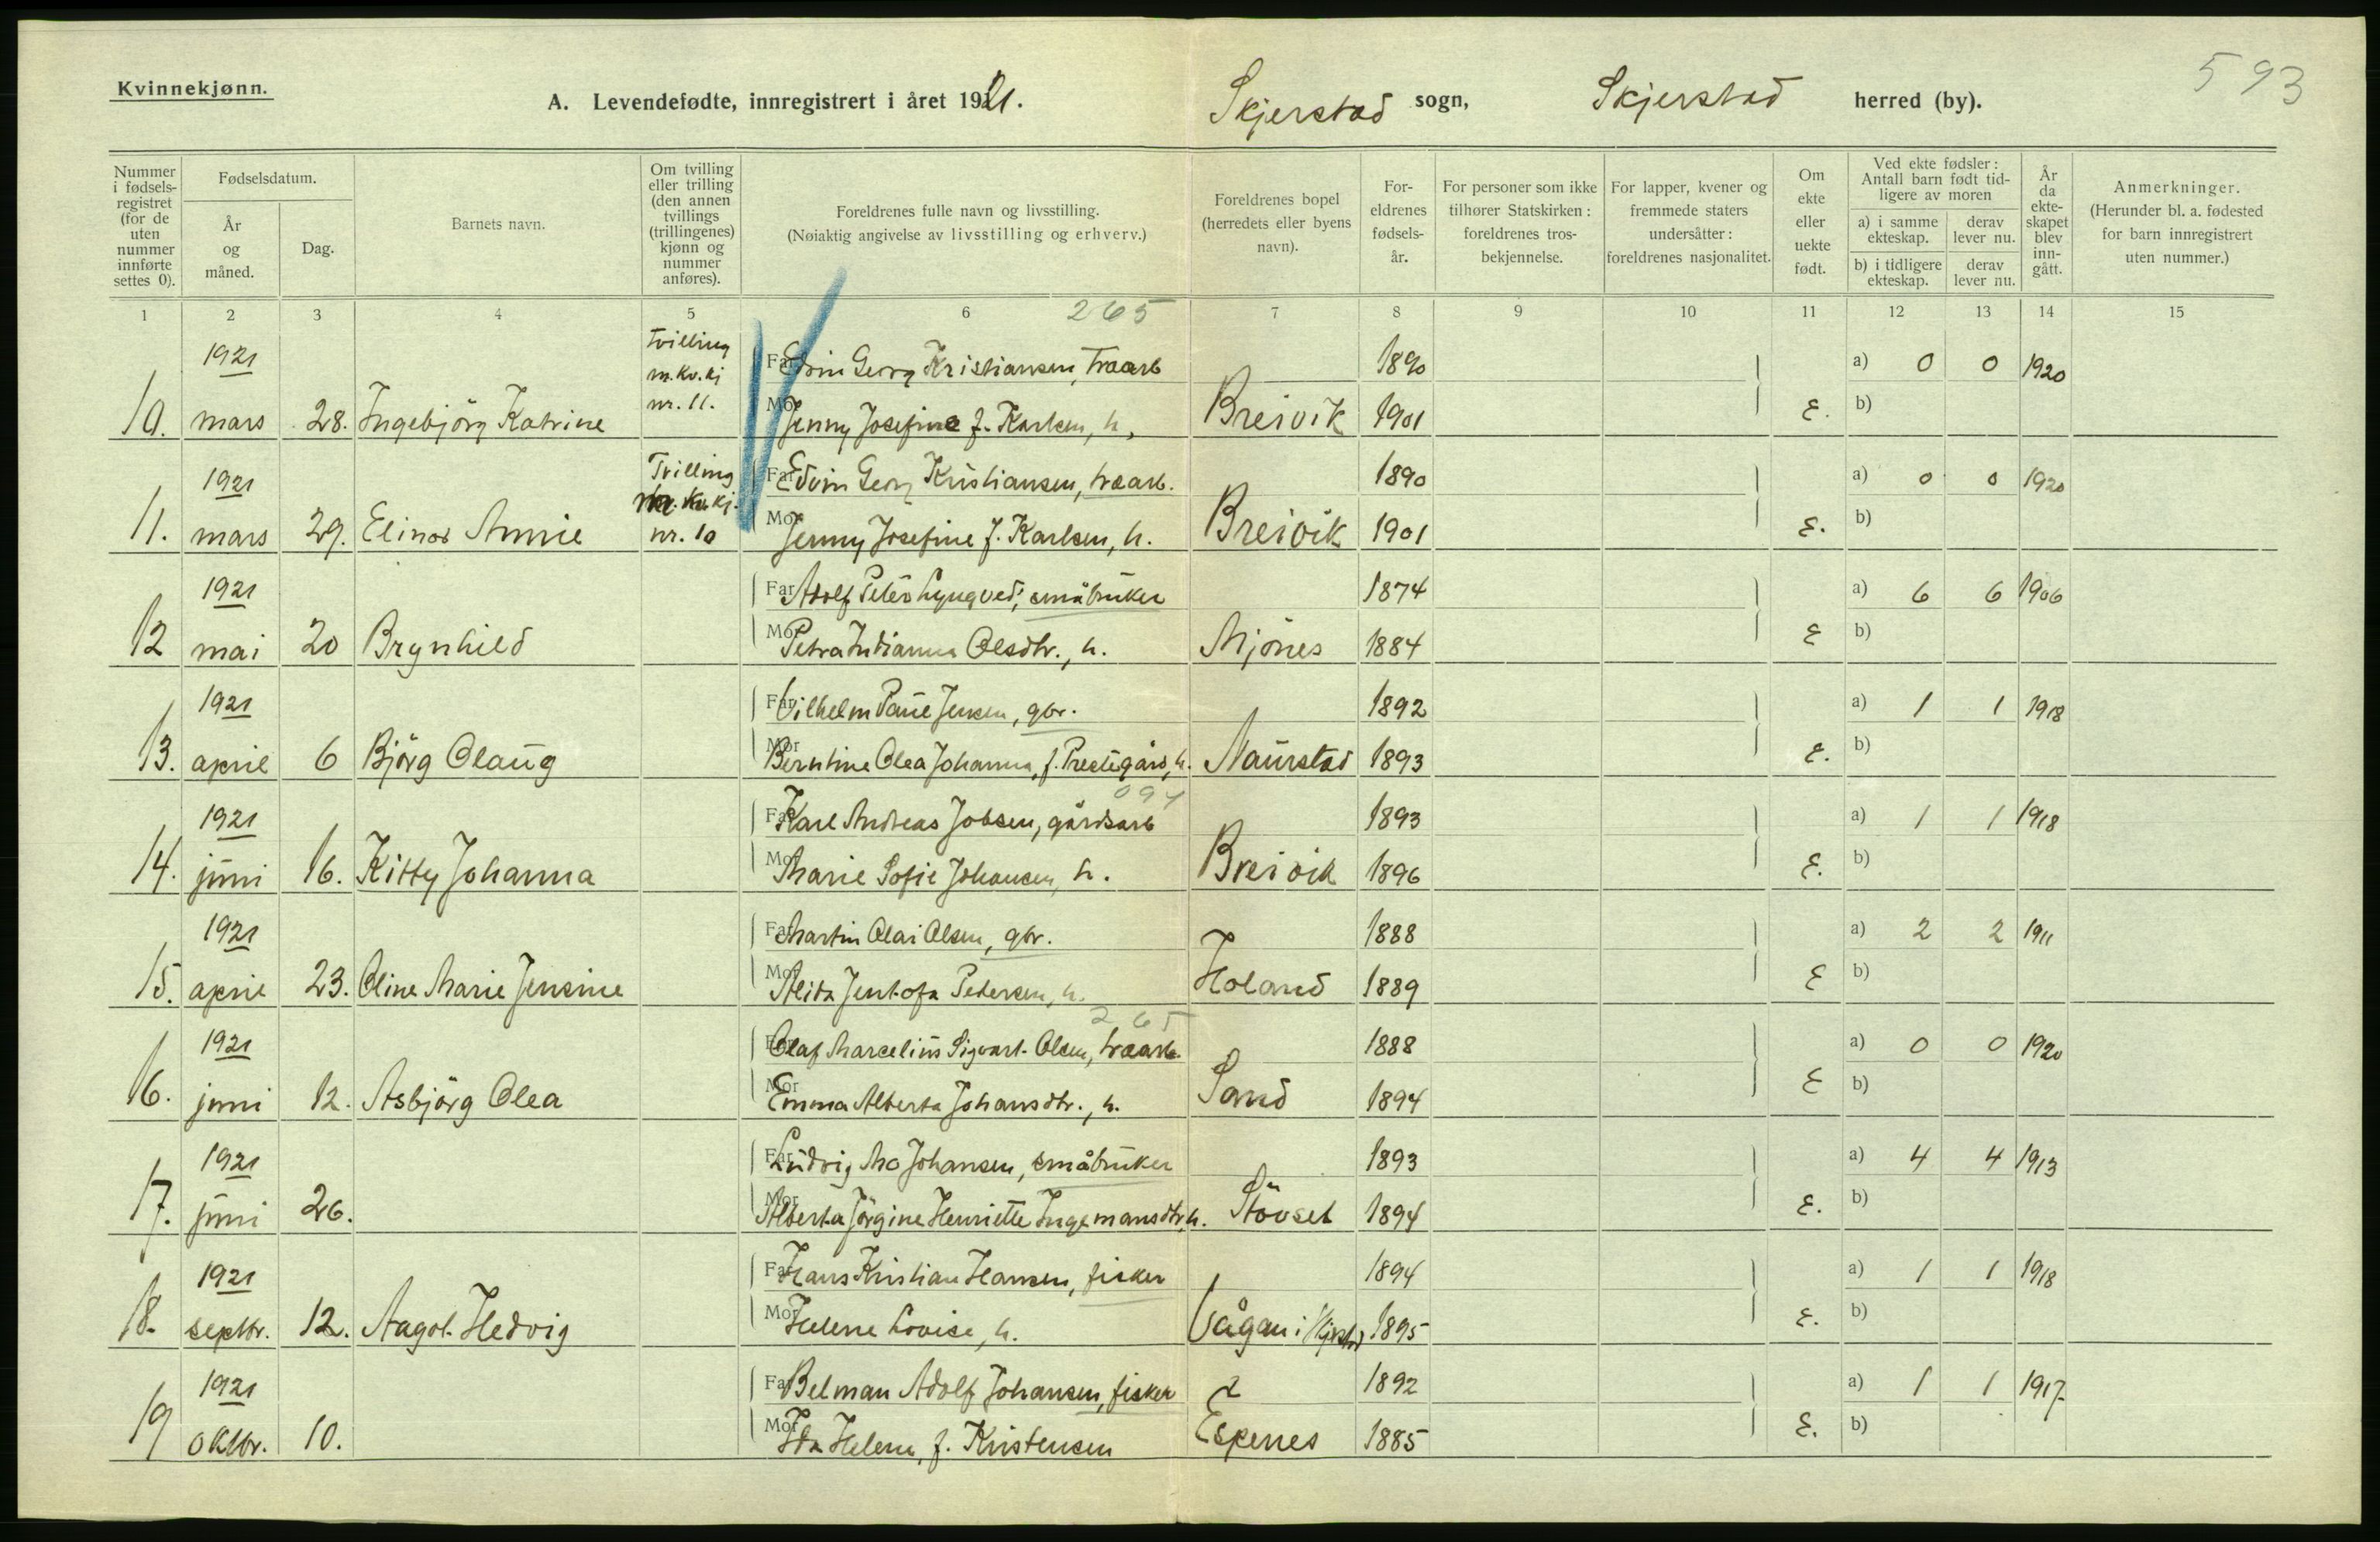 593
Kvinnekjønn.
A. Levendefødte, innregistrert i året 1921. Skjerstad sogn, Skjerstad herred (by).
Nummer i fødsels-registret (for de uten nummer innførte settes 0).
Fødselsdatum.
År og måned.
Dag.
Barnets navn.
Om tvilling eller trilling (den annen tvillings (trillingenes) kjønn og nummer anføres).
Foreldrenes fulle navn og livsstilling.
(Nøiaktig angivelse av livsstilling og erhverv.)
Foreldrenes bopel (herredets eller byens navn).
For-eldrenes fødsels-år.
For personer som ikke tilhører Statskirken: foreldrenes tros-bekjennelse.
For lapper, kvener og fremmede staters undersåtter: foreldrenes nasjonalitet.
Om ekte eller uekte født.
Ved ekte fødsler: Antall barn født tid-ligere av moren
a) i samme ekteskap.
derav lever nu.
b) i tidligere ekteskap.
derav lever nu.
År da ekte-skapet blev inn-gått.
Anmerkninger.
(Herunder bl. a. fødested for barn innregistrert uten nummer.)
1 2 3 4 5 6 7 8 9 10 11 12 13 14 15
265
1921 Tvilling m. kv. kj Far Edvin Georg Kristiansen, træarb 1890 a) 0 0 1920
10. mars 28. Ingebjörg Katrine nr. 11. Mor Jenny Josefine f. Karlsen, h, Breivik 1901 E. b)
1921 Tvilling kv. kj. Far Edvin Georg Kristiansen, træarb. 1890 a) 0 0 1920
11. mars 29. Elinor Annie nr. 10 Mor Jenny Josefine f. Karlsen, h. Breivik 1901 E. b)
1921 Far Adolf Peter Lyngved, småbruker 1874 a) 6 6 1906
12 mai 20 Brynhild Mor Petra Indianna Olsdtr., h. Mjönes 1884 E b)
1921 Far Vilhelm Paul Jensen, gbr. 1892 a) 1 1 1918
13. april 6 Björg Olaug Mor Berntine Olea Johanna, f. Prestegård, h. Naurstad 1893 E. b)
094
1921 Far Karl Andreas Jobsen, gårdsarb 1893 a) 1 1 1918
14. juni 16. Kitty Johanna Mor Marie Sofie Johansen, h. Breivik 1896 E. b)
1921 Far Martin Olai Olsen, gbr. 1888 a) 2 2 1911
15. april 23. Oline Marie Jensine Mor Alida Jentofa Pedersen, h. Holand 1889 E b)
265
1921 Far Olaf Marcelius Sigvart Olsen, træarb. 1888 a) 0 0 1920
16. juni 12. Asbjörg Olea Mor Emma Alberta Johansdtr., h. Sand 1894 E b)
1921 Far Ludvig Mo Johansen, småbruker 1893 a) 4 4 1913
17. juni 26. Mor Alberta Jörgine Henriette Ingemansdtr, h. Stövset 1894 E. b)
1921 Far Hans Kristian Hansen, fisker 1894 a) 1 1 1918
18. septbr. 12. Aagot Hedvig Mor Helene Lovise, h. Vågan i Skjerstad 1895 E. b)
1921 Far Belman Adolf Johansen, fisker 1892 a) 1 1 1917
19 oktbr. 10. Mor Ida Helene, f. Kristensen Espenes 1885 E. b)